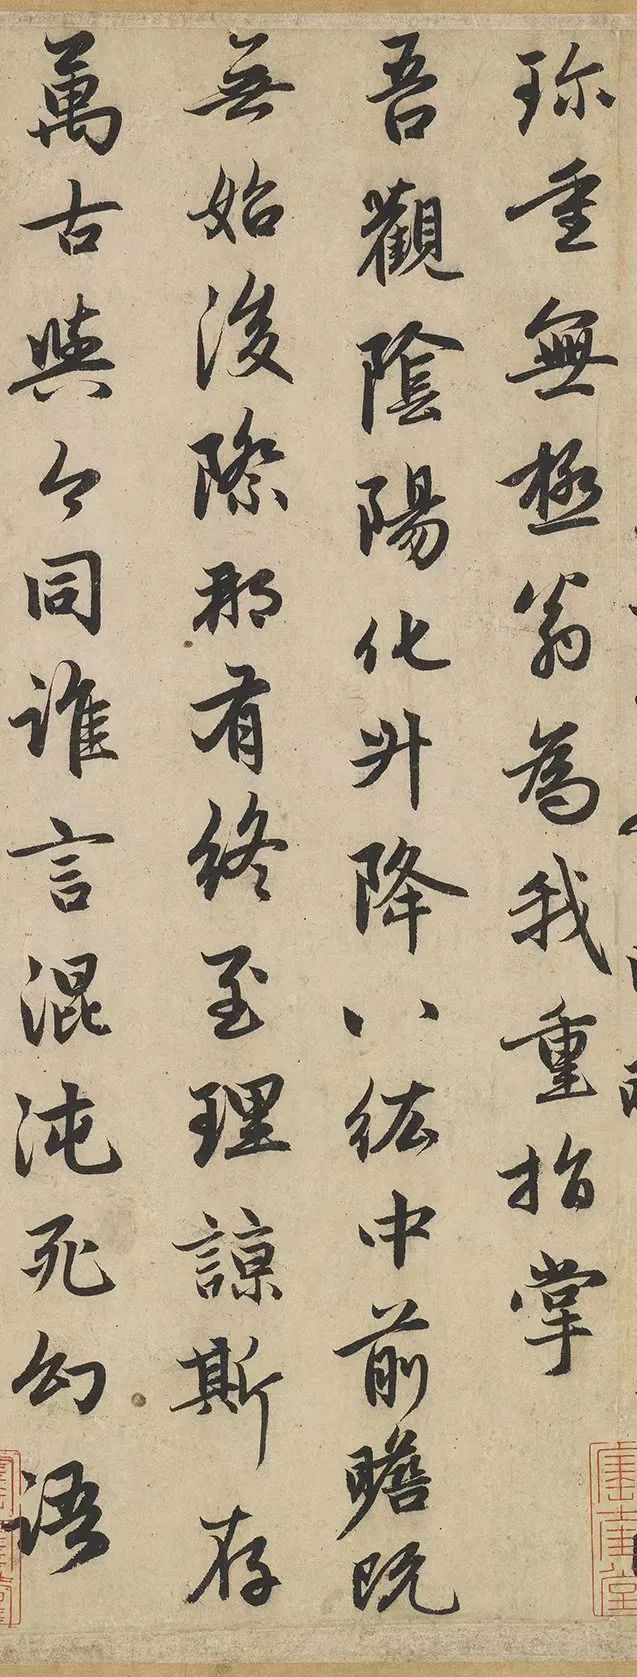 珍重無極翁為我重指掌
吾觀陰陽化升降八紘中前瞻既
無始後際那有終至理諒斯存
萬古與今同誰言混沌死幻語